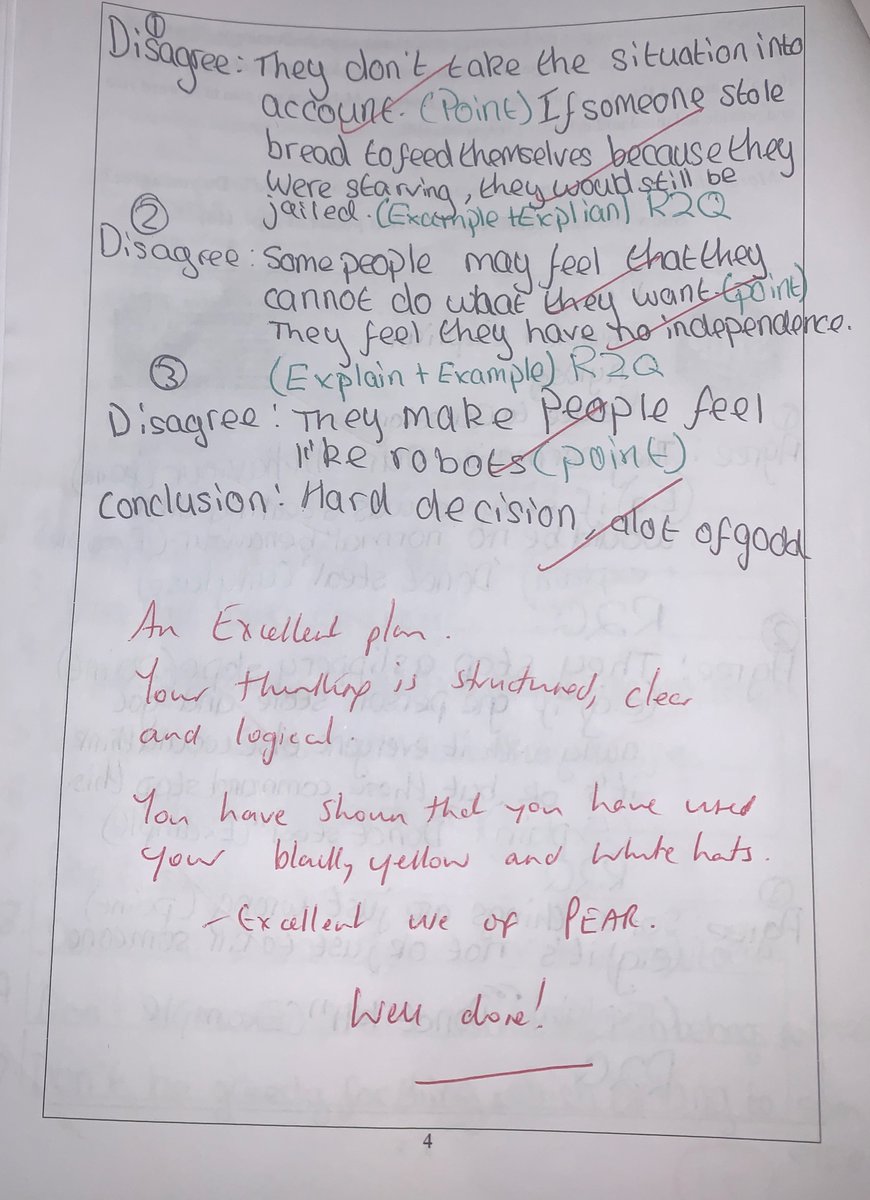 ①
Disagree: They don't take the situation into
account. (Point) If someone stole
bread to feed themselves because they
were starving, they would still be
jailed. (Example + Explian) R2Q
②
Disagree: Some people may feel that they
cannot do what they want (point)
They feel they have no independence.
(Explain + Example) R2Q
③
Disagree: They make people feel
like robots (point)
Conclusion: Hard decision, alot of good
An Excellent plan.
Your thinking is structured, clear
and logical.
You have shown that you have used
your black, yellow and white hats.
- Excellent use of PEAR.
Well done!
4